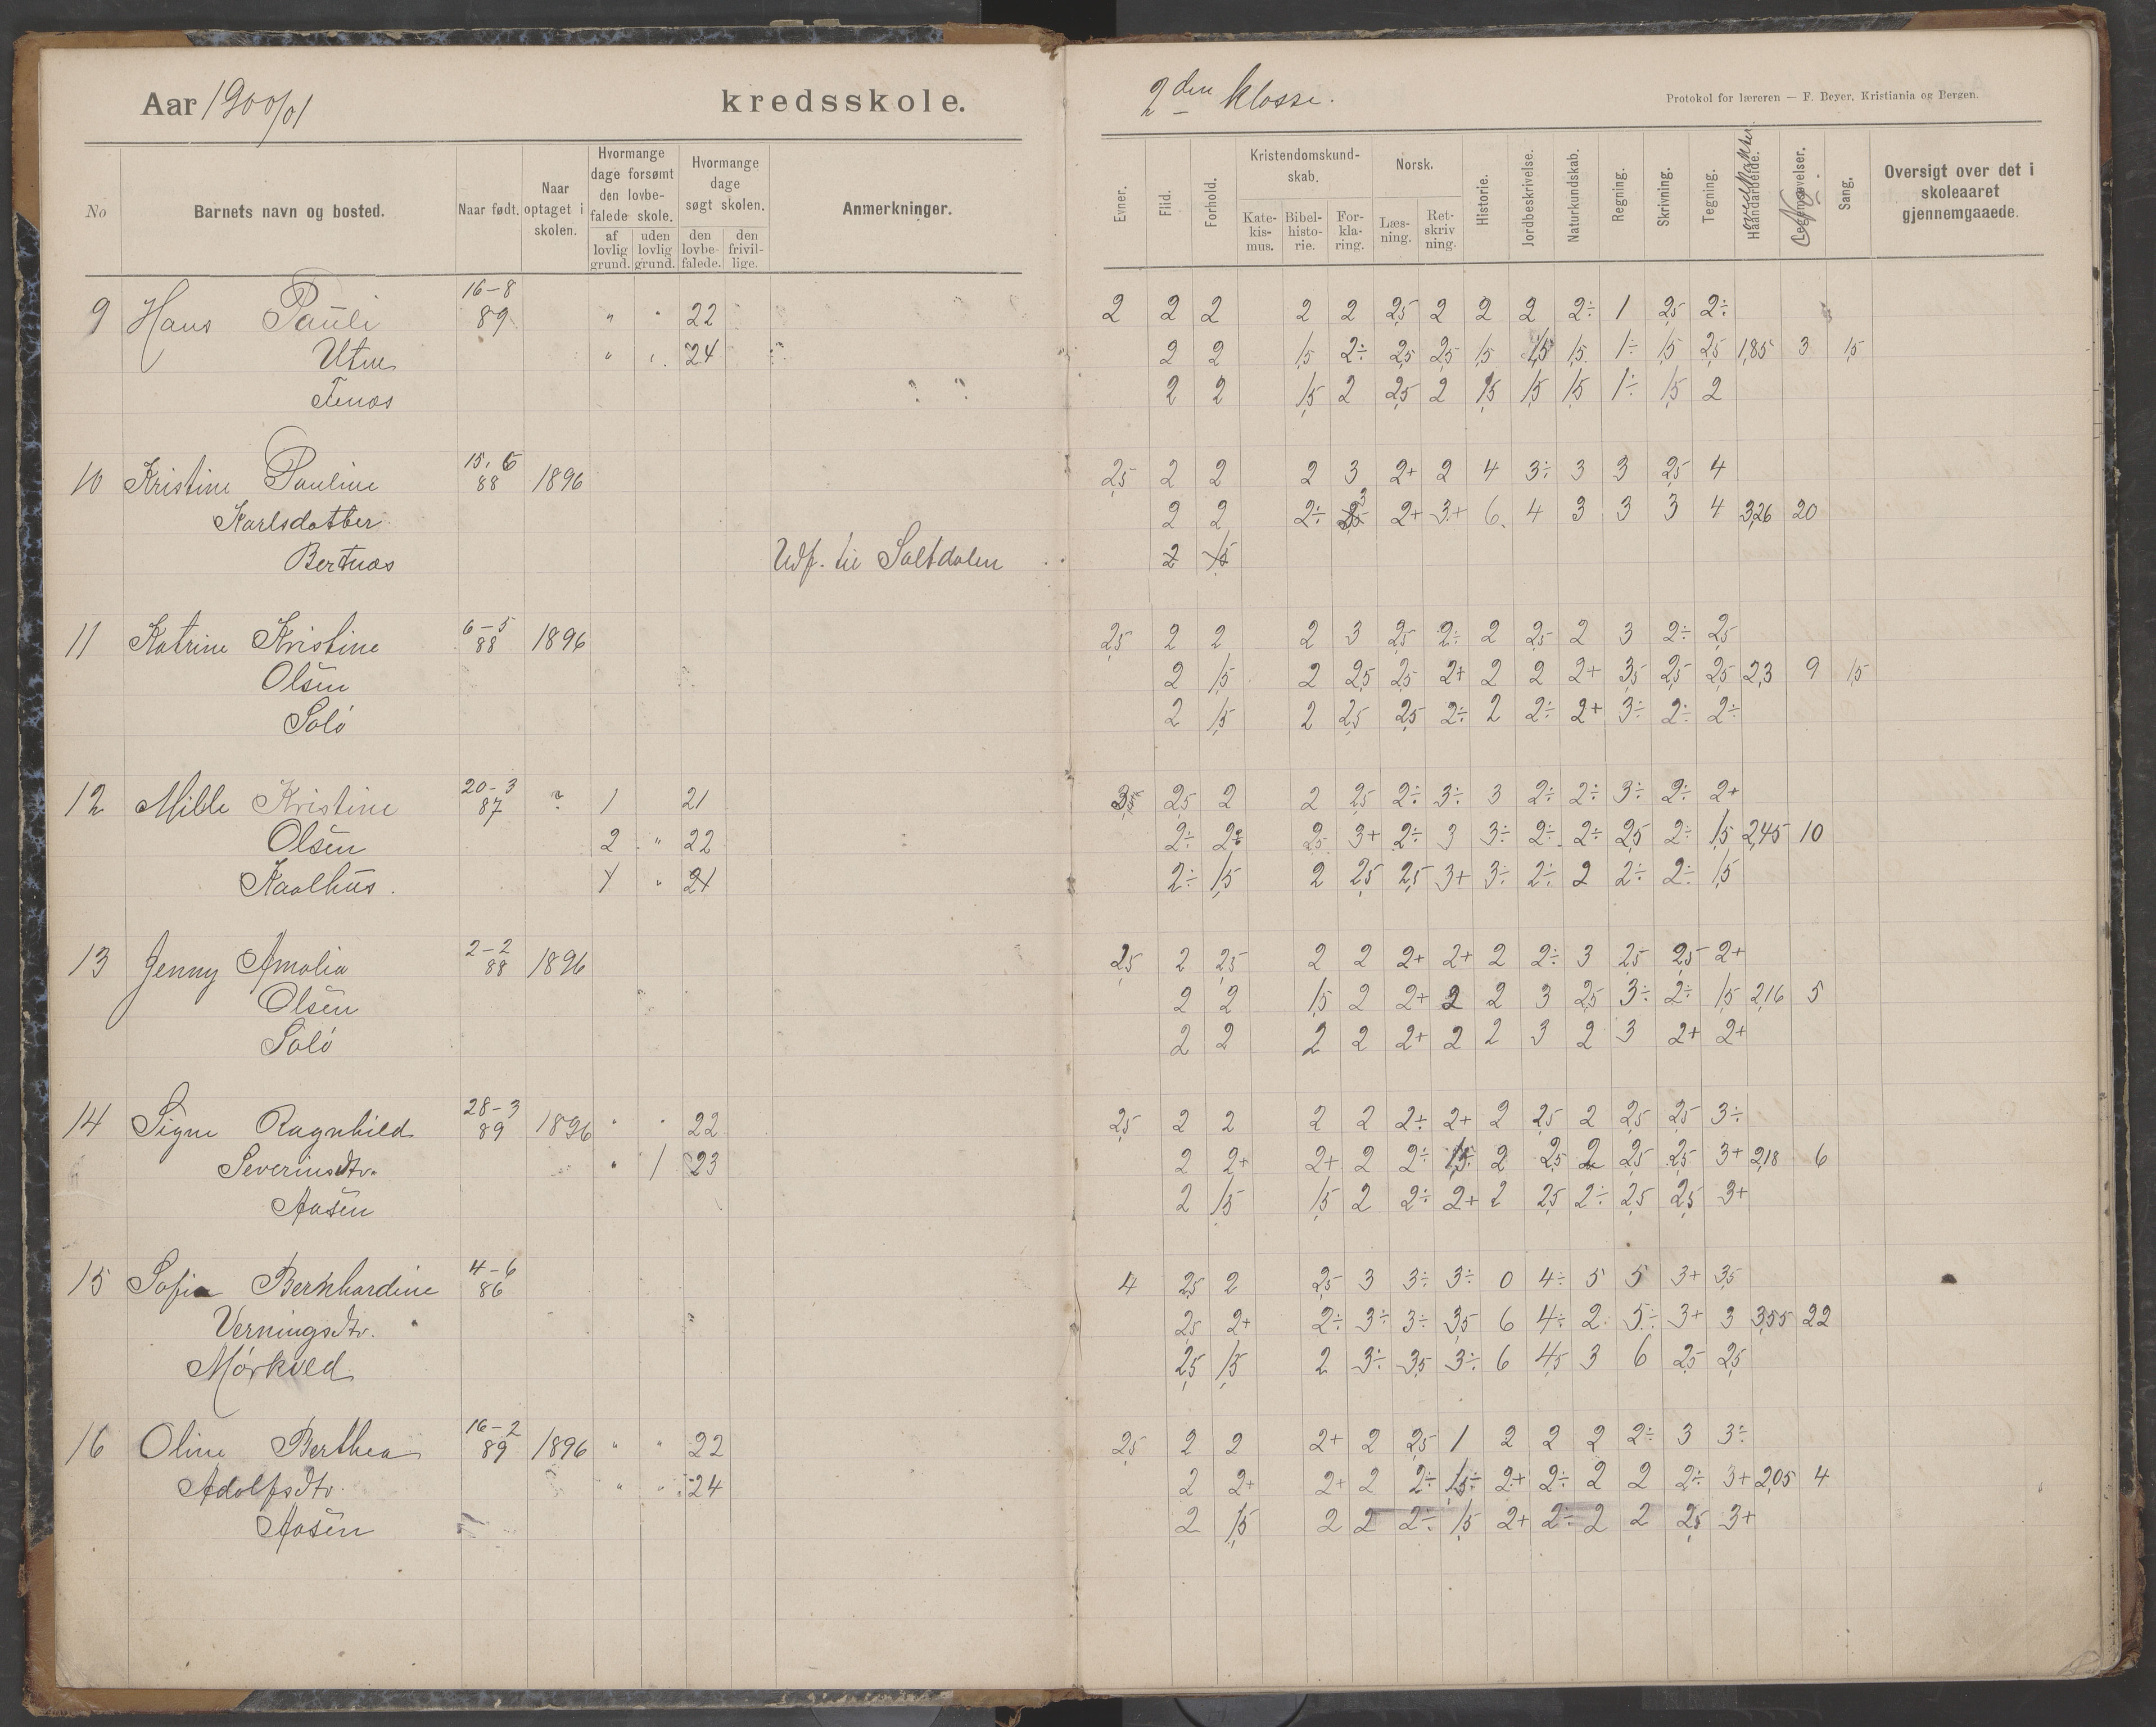 Aar 1900/01 kredsskole.
2den klasse.
Protokol for læreren — F. Beyer, Kristiania og Bergen.
No
Barnets navn og bosted.
Naar født.
Naar optaget i skolen.
Hvormange dage forsømt den lovbefalede skole.
af lovlig grund.
uden lovlig grund.
Hvormange dage søgt skolen.
den lovbefalede.
den frivillige.
Anmerkninger.
Evner.
Flid.
Forhold.
Kristendomskundskab.
Katekismus.
Bibelhistorie.
Forklaring.
Norsk.
Læsning.
Retskrivning.
Historie.
Jordbeskrivelse.
Naturkundskab.
Regning.
Skrivning.
Tegning.
Haandarbeide.
Legemsøvelser.
Sang.
Oversigt over det i skoleaaret gjennemgaaede.
9 Hans Pauli 16-8 89 " " 22 2 2 2 2 2 2,5 2 2 2 2÷ 1 2,5 2÷
Utne " " 24 2 2 1,5 2÷ 2,5 2,5 1,5 1,5 1,5 1÷ 1,5 2,5 1,85 3 1,5
Tenæs 2 2 1,5 2 2,5 2 1,5 1,5 1,5 1÷ 1,5 2
10 Kristine Pauline 15.6 88 1896 2,5 2 2 2 3 2+ 2 4 3÷ 3 3 2,5 4
Karlsdatter 2 2 2÷ 3 2+ 3+ 6 4 3 3 3 4 3,26 20
Bertnæs Udf. til Saltdalen 2 1,5
11 Katrine Kristine 6-5 88 1896 2,5 2 2 2 3 2,5 2÷ 2 2,5 2 3 2÷ 2,5
Olsen 2 1,5 2 2,5 2,5 2+ 2 2 2+ 3,5 2,5 2,5 2,3 9 1,5
Solø 2 1,5 2 2,5 2,5 2÷ 2 2÷ 2+ 3÷ 2÷ 2÷
12 Milde Kristine 20-3 87 ? 1 21 3,5 2,5 2 2 2,5 2÷ 3÷ 3 2÷ 2÷ 3÷ 2÷ 2+
Olsen 2 " 22 2÷ 2÷ 2,5 3+ 2÷ 3 3÷ 2÷ 2÷ 2,5 2÷ 1,5 2,45 10
Kaalhus. 1 " 21 2÷ 1,5 2 2,5 2,5 3+ 3÷ 2÷ 2 2÷ 2÷ 1,5
13 Jenny Amalia 2-2 88 1896 2,5 2 2,5 2 2 2+ 2+ 2 2÷ 3 2,5 2,5 2+
Olsen 2 2 1,5 2 2+ 2 2 3 2,5 3÷ 2÷ 1,5 2,16 5
Solø 2 2 2 2 2+ 2 2 3 2 3 2+ 2+
14 Signe Ragnhild 28-3 89 1896 " " 22 2,5 2 2 2 2 2÷ 2+ 2 2,5 2 2,5 2,5 3÷
Severinsdtr. " 1 23 2 2+ 2+ 2 2÷ 1,5 2 2,5 2 2,5 2,5 3+ 2,18 6
Aasen 2 1,5 1,5 2 2÷ 2+ 2 2,5 2÷ 2,5 2,5 3+
15 Sofia Bernhardine 4-6 86 4 2,5 2 2,5 3 3÷ 3÷ 0 4÷ 5 5 3+ 3,5
Verningsdtr. 2,5 2+ 2÷ 3÷ 3÷ 3,5 6 4÷ 2 5÷ 3+ 3 3,55 22
Mørkved 2,5 1,5 2 3÷ 3,5 3÷ 6 4,5 3 6 2,5 2,5
16 Oline Berthea 16-2 89 1896 " " 22 2,5 2 2 2+ 2 2,5 1 2 2 2 2÷ 3 3÷
Adolfsdtr. " " 24 2 2+ 2+ 2 2÷ 1,5÷ 2+ 2÷ 2 2 2÷ 3+ 2,05 4
Aasen 2 1,5 2 2 2÷ 1,5 2+ 2÷ 2 2 2,5 3+